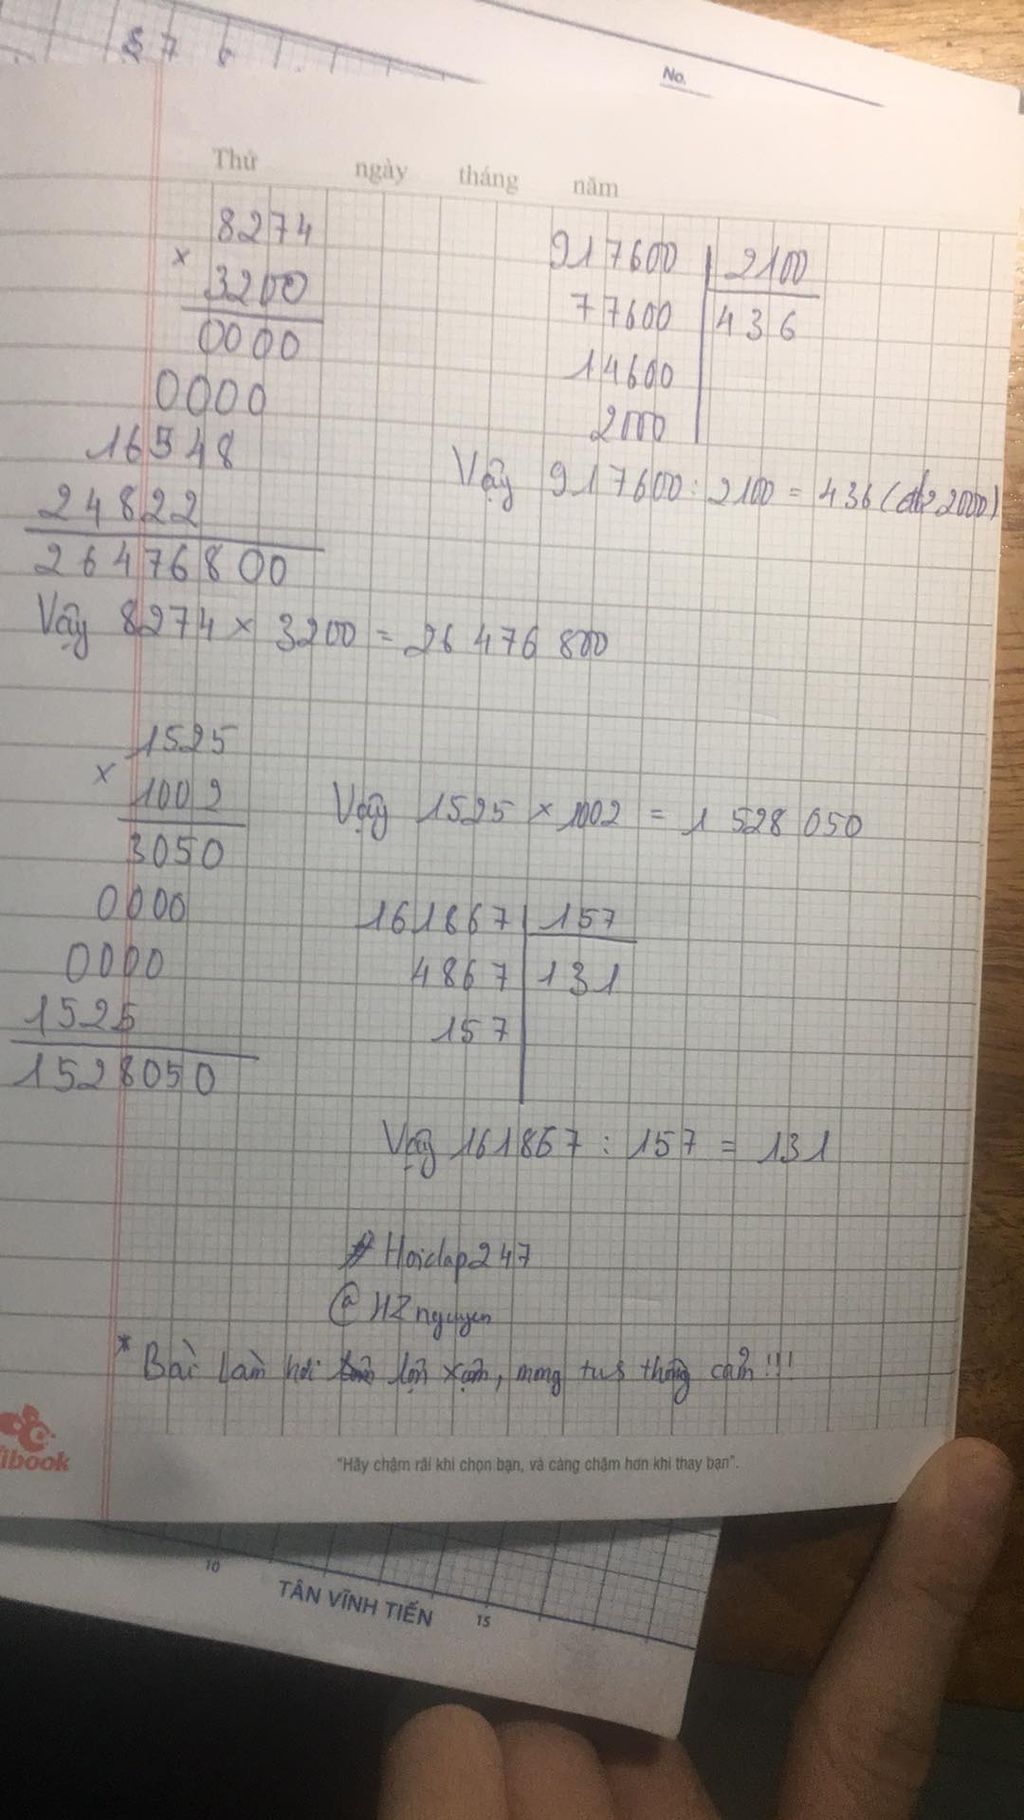 8 7 6
No.
Thứ ngày tháng năm
8274
×
3200
0000
0000
16548
24822
26476800
Vậy 8274 × 3200 = 26 476 800
917600 2100
77600 436
14600
2000
Vậy 917600 : 2100 = 436 (dư 2000)
1525
×
1002
3050
0000
0000
1525
1528050
Vậy 1525 × 1002 = 1 528 050
161867 157
4867 131
157
Vậy 161867 : 157 = 131
# Hoidap247
@HZnguyen
* Bài làm hơi lộn xộn, mong tus thông cảm !!!
ibook
"Hãy chậm rãi khi chọn bạn, và càng chậm hơn khi thay bạn".
10
TÂN VĨNH TIẾN
15